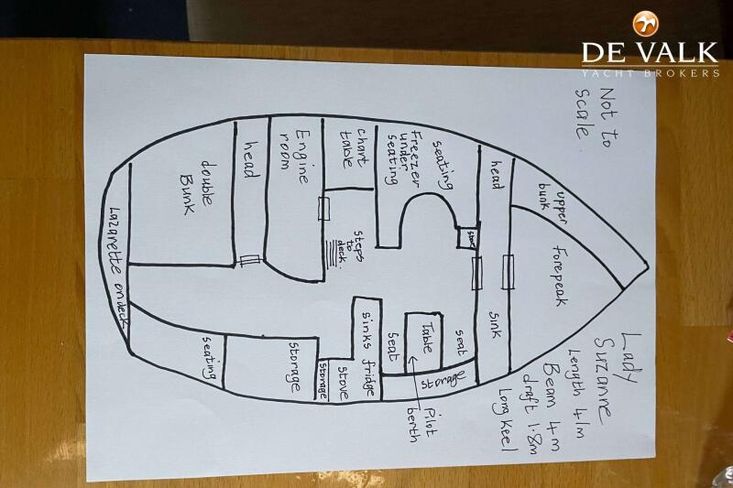 DE VALK
YACHT BROKERS
Not to
scale
Lady
Suzanne
Length 41m
Beam 4m
draft 1.8m
Long Keel
upper
bunk
Forepeak
head
sink
seating
Freezer
under
seating
stove
chart
table
Engine
room
head
double
Bunk
Lazarette on deck
steps
to
deck
seat
Table
seat
storage
Pilot
berth
sinks fridge
stove
storage
storage
seating